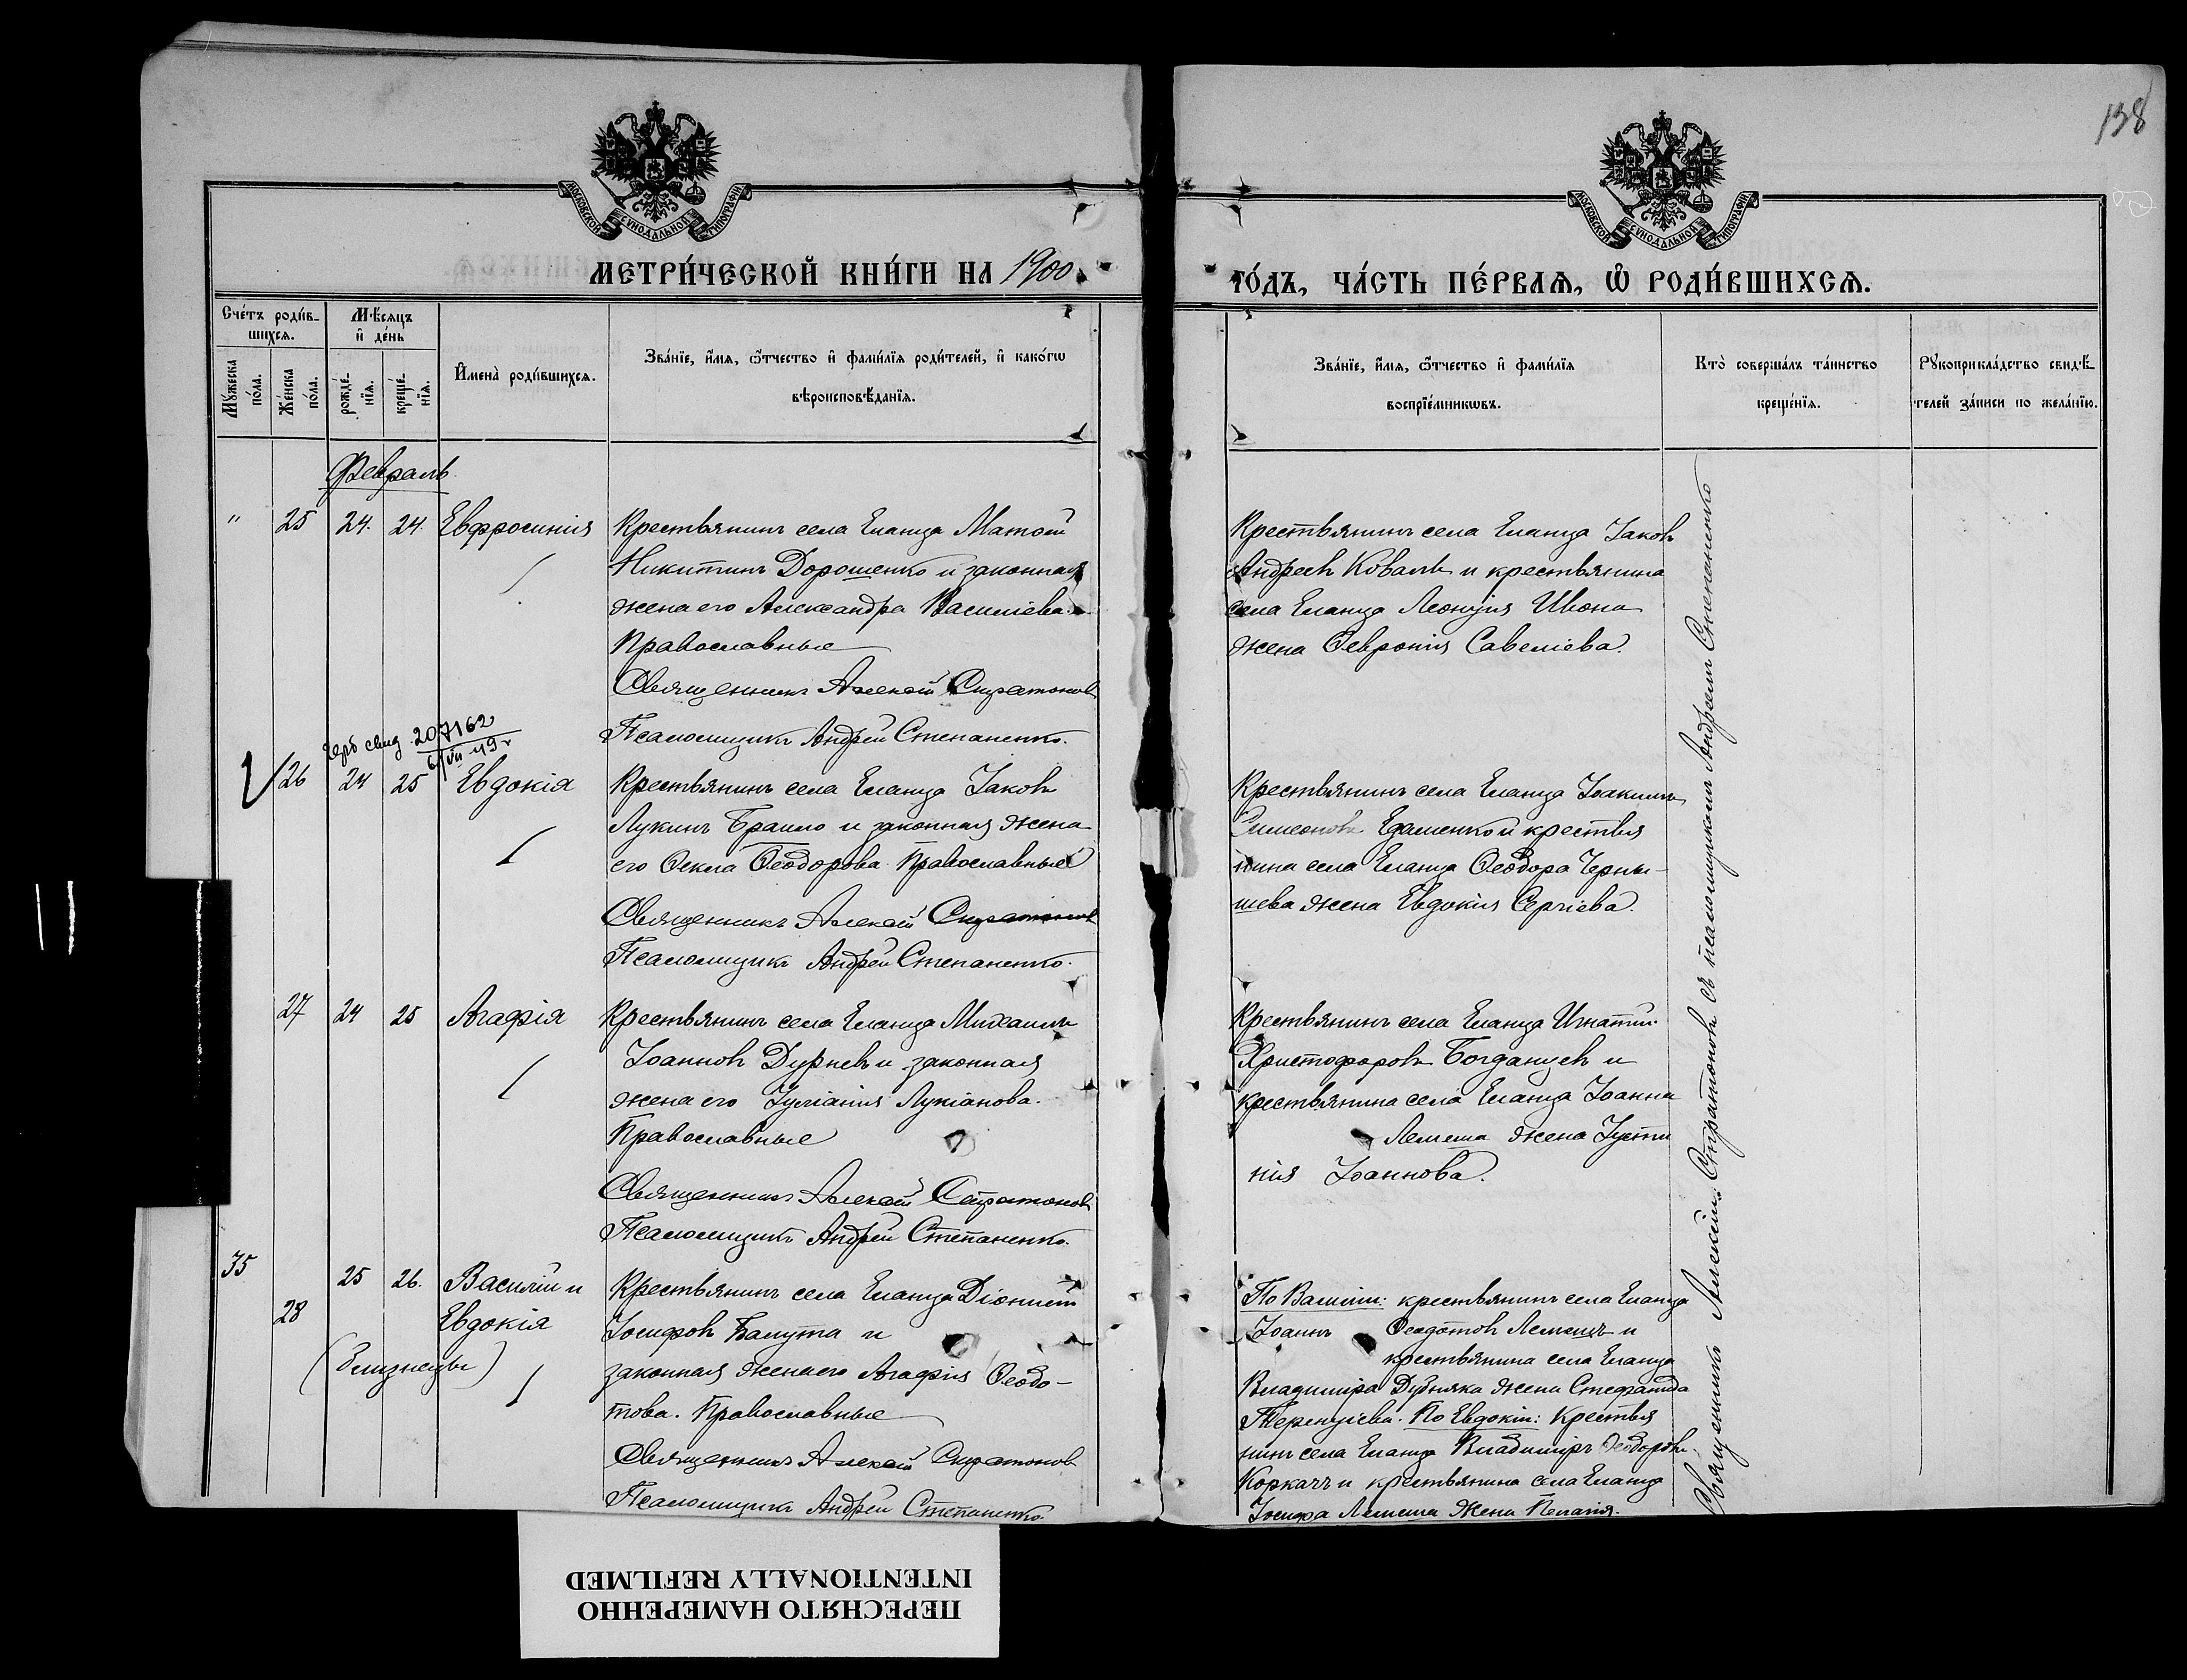 138
МОСКОВСКОЙ СѴНОДАЛЬНОЙ ТИПОГРАФІИ
МОСКОВСКОЙ СѴНОДАЛЬНОЙ ТИПОГРАФІИ
МЕТРИ́ЧЕСКОЙ КНИ́ГИ НА 1900
ГО́ДЪ, ЧА́СТЬ ПЕ́РВАѦ, Ѽ РОДИ́ВШИХСѦ.
Сче́тъ роди́в-
шихсѧ.
Мѣ́сяцъ
и҆ де́нь
Мꙋ́жеска
по́ла.
Же́нска
по́ла.
рожде́-
нїѧ.
креще́-
нїѧ.
И҆мена̀ роди́вшихсѧ.
Зва́нїе, и҆́мѧ, ѻ҆́тчество и҆ фами́лїѧ роди́телей, и҆ како́гѡ
вѣроисповѣ́данїѧ.
Зва́нїе, и҆́мѧ, ѻ҆́тчество и҆ фами́лїѧ
воспрїе́мникѡвъ.
Кто̀ соверша́лъ та́инство
креще́нїѧ.
Рꙋкоприкла́дство свидѣ́-
телей за́писи по жела́нїю.
Февраль
" 25 24. 24. Евфросинія
Крестьянинъ села Еланца Матѳій
Никитинъ Дорошенко и законная
жена его Александра Василіева.
Православные
Священникъ Алексій Стратоновъ
Псаломщикъ Андрей Степаненко.
Крестьянинъ села Еланца Іаковъ
Андреевъ Коваль и крестьянина
села Еланца Леонтія Ивона
жена Ѳевронія Савеліева.
свид. 207162
6/VII 49 г
26 24 25 Евдокія
Крестьянинъ села Еланца Іаковъ
Лукинъ Браило и законная жена
его Ѳекла Ѳеодорова Православные
Священникъ Алексій Стратоновъ
Псаломщикъ Андрей Степаненко.
Крестьянинъ села Еланца Іоакимъ
Симеоновъ и крестья
нина села Еланца Ѳеодора Черны-
шева жена Евдокія Сергіева.
27 24 25 Агафія
Крестьянинъ села Еланца Михаилъ
Іоанновъ Дурневъ и законная
жена его Іуліанія Лукіанова.
Православные
Священникъ Алексій Стратоновъ
Псаломщикъ Андрей Степаненко.
Крестьянинъ села Еланца Игнатій
Христофоровъ Богданцевъ и
крестьянина села Еланца Іоанна
Лемеша жена Іусти
нія Іоаннова.
35 25 26. Василій и
28 Евдокія
(близнецы)
Крестьянинъ села Еланца Діонисій
Іосифовъ Балута и
законная жена его Агафія Ѳеодо-
това. Православные
Священникъ Алексій Стратоновъ
Псаломщикъ Андрей Степаненко.
По Василіи: крестьянинъ села Еланца
Іоаннъ Ѳеодотовъ Лемешъ и
крестьянина села Еланца
Владиміра Дубняка жена Стефанида
Терентіева. По Евдокіи: Крестья
нинъ села Еланца Владиміръ Ѳеодоровъ
Коркачъ и крестьянина села Еланца
Іосифа Лемеша жена Пелагія.
Священникъ Алексій Стратоновъ съ псаломщикомъ Андреемъ Степаненко
ПЕРЕСНЯТО НАМЕРЕННО
INTENTIONALLY REFILMED